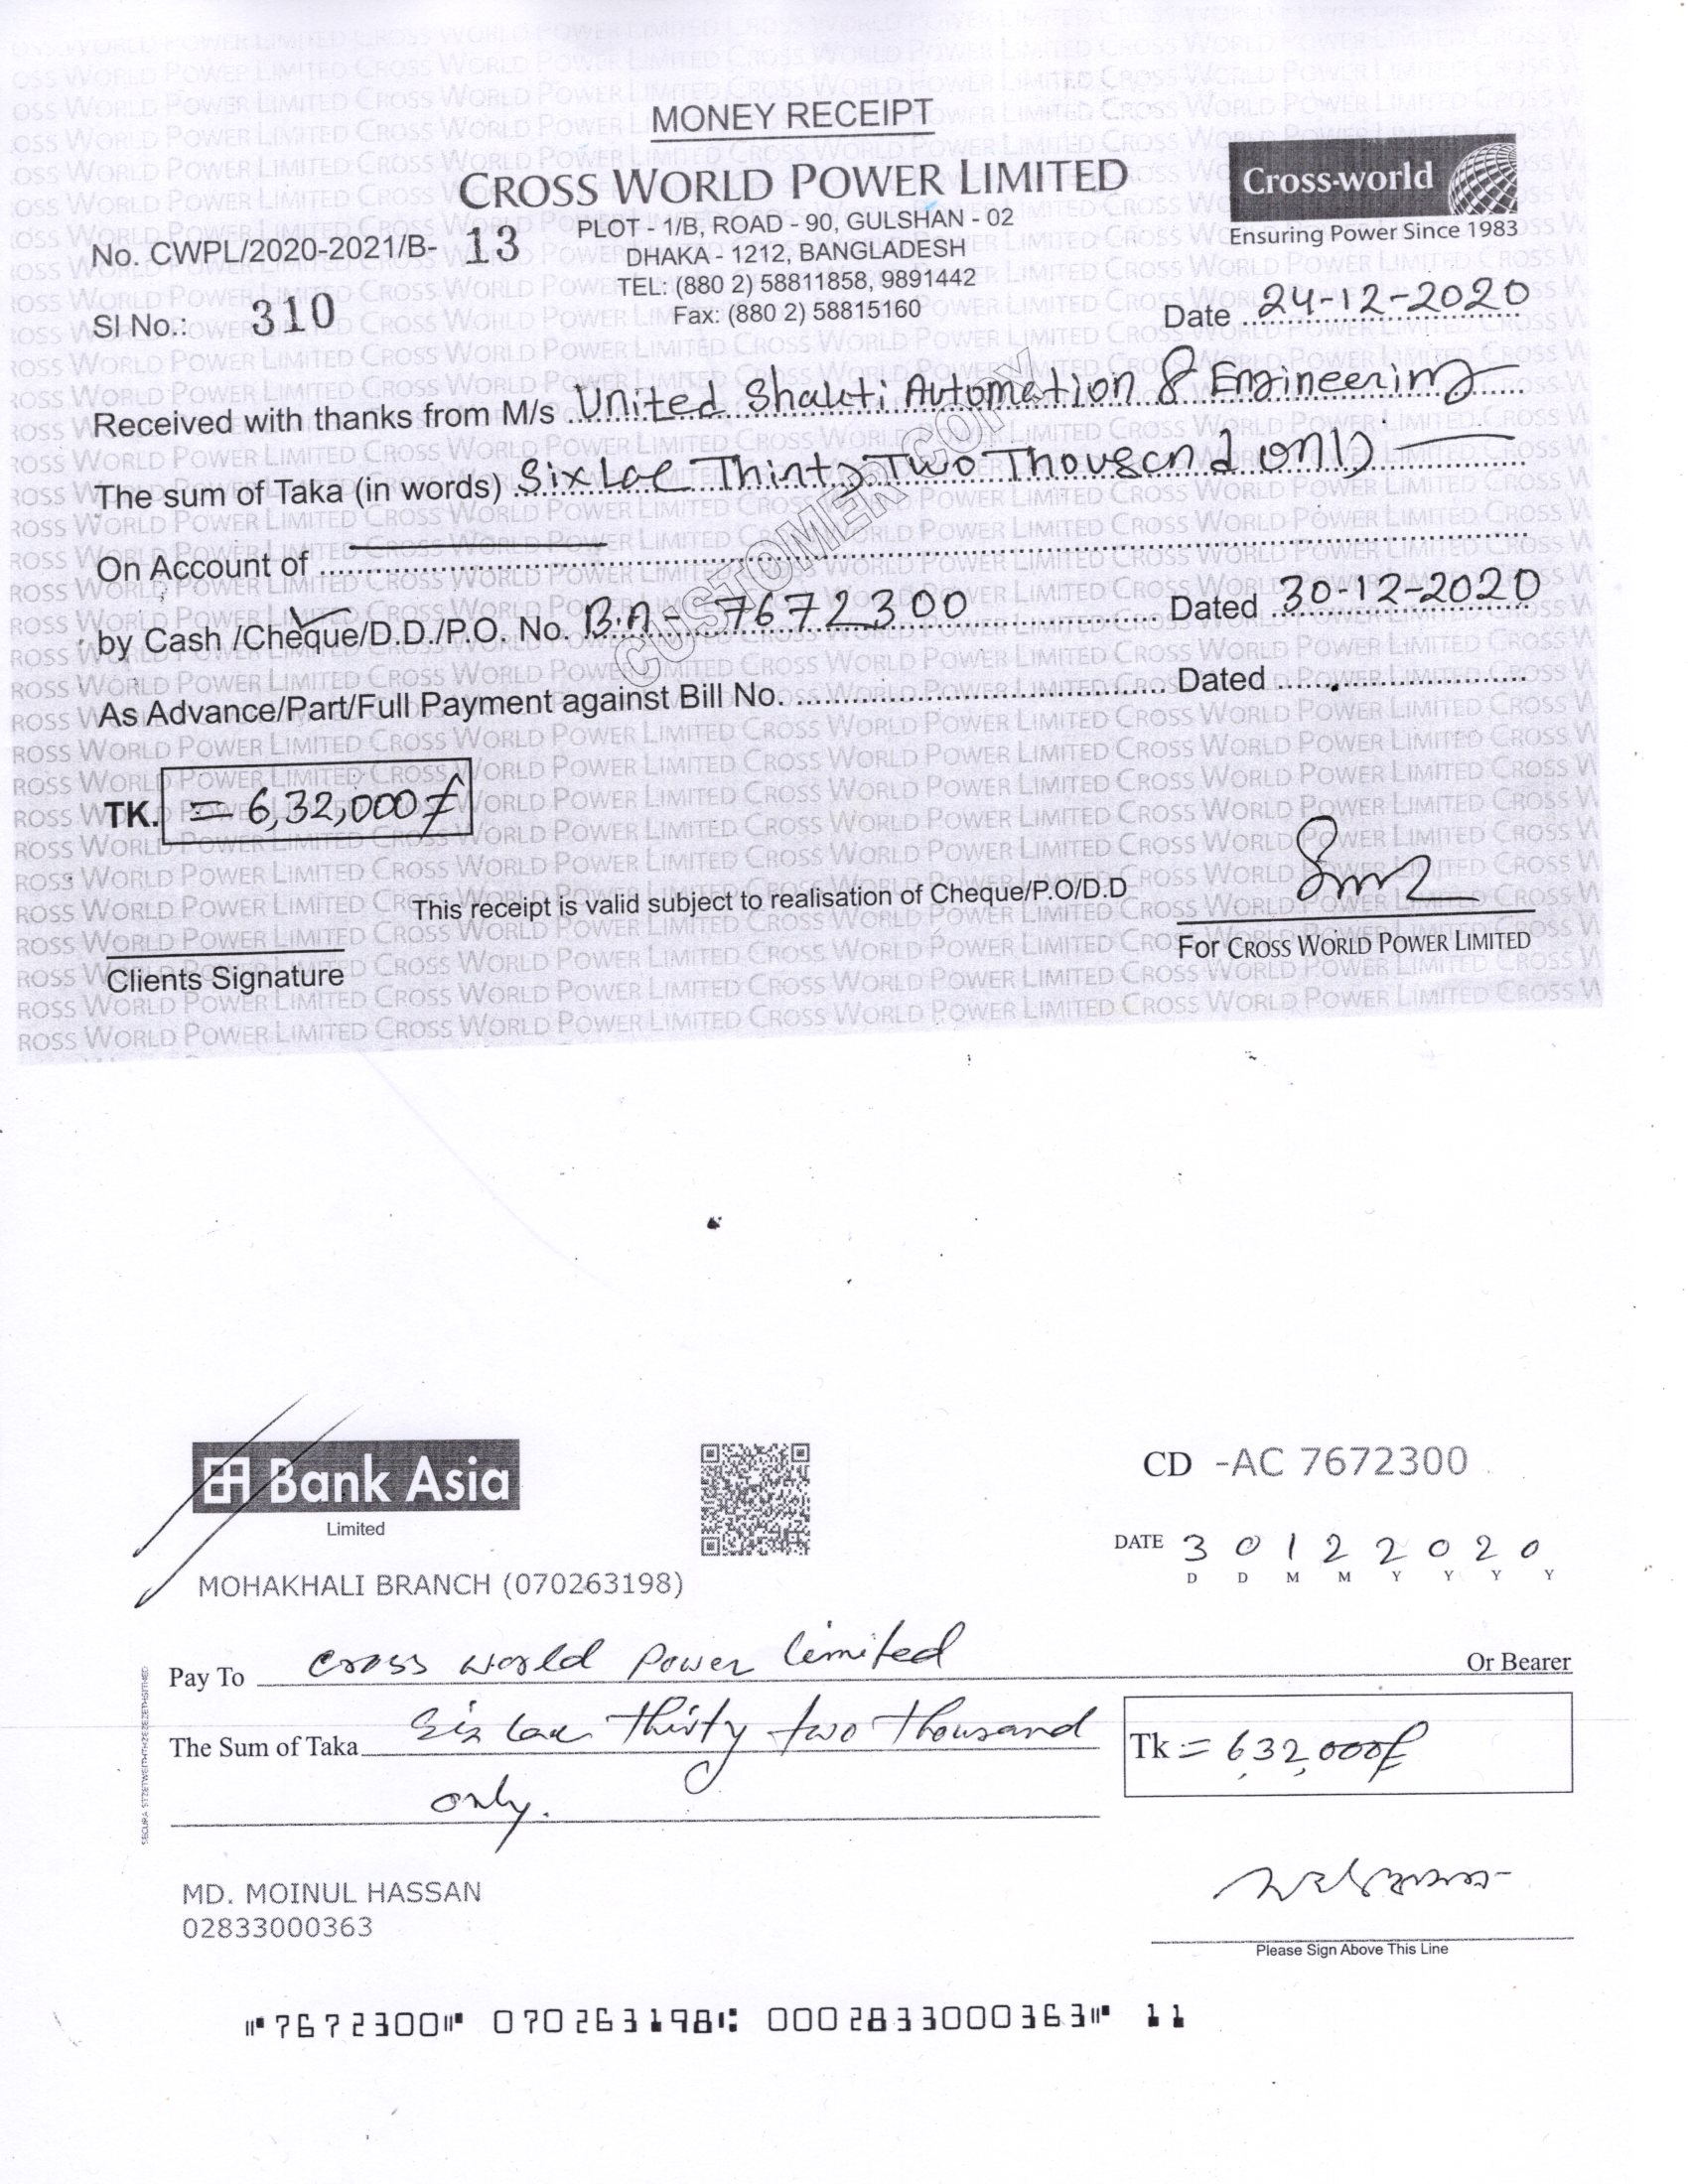 MONEY RECEIPT
CROSS WORLD POWER LIMITED
Cross-world
Ensuring Power Since 1983
PLOT - 1/B, ROAD - 90, GULSHAN - 02
DHAKA - 1212, BANGLADESH
TEL: (880 2) 58811858, 9891442
Fax: (880 2) 58815160
No. CWPL/2020-2021/B- 13
Sl No.: 310
Date 24-12-2020
Received with thanks from M/s United Shakti Automation & Engineering
The sum of Taka (in words) Six Lac Thinty Two Thousand only
On Account of
by Cash /Cheque/D.D./P.O. No. B.A- 7672300 Dated 30-12-2020
As Advance/Part/Full Payment against Bill No. Dated
CUSTOMER COPY
TK. = 6,32,000/
This receipt is valid subject to realisation of Cheque/P.O/D.D
For CROSS WORLD POWER LIMITED
Clients Signature
Bank Asia
Limited
MOHAKHALI BRANCH (070263198)
CD -AC 7672300
DATE 3 0 1 2 2 0 2 0
D D M M Y Y Y Y
Pay To cross world power limited Or Bearer
The Sum of Taka Six lac thirty two thousand
only.
Tk = 6,32,000/
MD. MOINUL HASSAN
02833000363
Please Sign Above This Line
⑈7672300⑈ 070263198⑆ 0002833000363⑈ 11